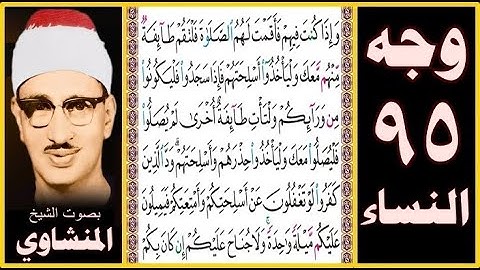 وجه
٩٥
النساء
وَإِذَا كُنتَ فِيهِمْ فَأَقَمْتَ لَهُمُ الصَّلَوٰةَ فَلْتَقُمْ طَآئِفَةٌ
مِّنْهُم مَّعَكَ وَلْيَأْخُذُوٓا۟ أَسْلِحَتَهُمْ فَإِذَا سَجَدُوا۟ فَلْيَكُونُوا۟
مِن وَرَآئِكُمْ وَلْتَأْتِ طَآئِفَةٌ أُخْرَىٰ لَمْ يُصَلُّوا۟
فَلْيُصَلُّوا۟ مَعَكَ وَلْيَأْخُذُوا۟ حِذْرَهُمْ وَأَسْلِحَتَهُمْ ۗ وَدَّ الَّذِينَ
كَفَرُوا۟ لَوْ تَغْفُلُونَ عَنْ أَسْلِحَتِكُمْ وَأَمْتِعَتِكُمْ فَيَمِيلُونَ
عَلَيْكُم مَّيْلَةً وَٰحِدَةً ۚ وَلَا جُنَاحَ عَلَيْكُمْ إِن كَانَ بِكُمْ
بصوت الشيخ
المنشاوي